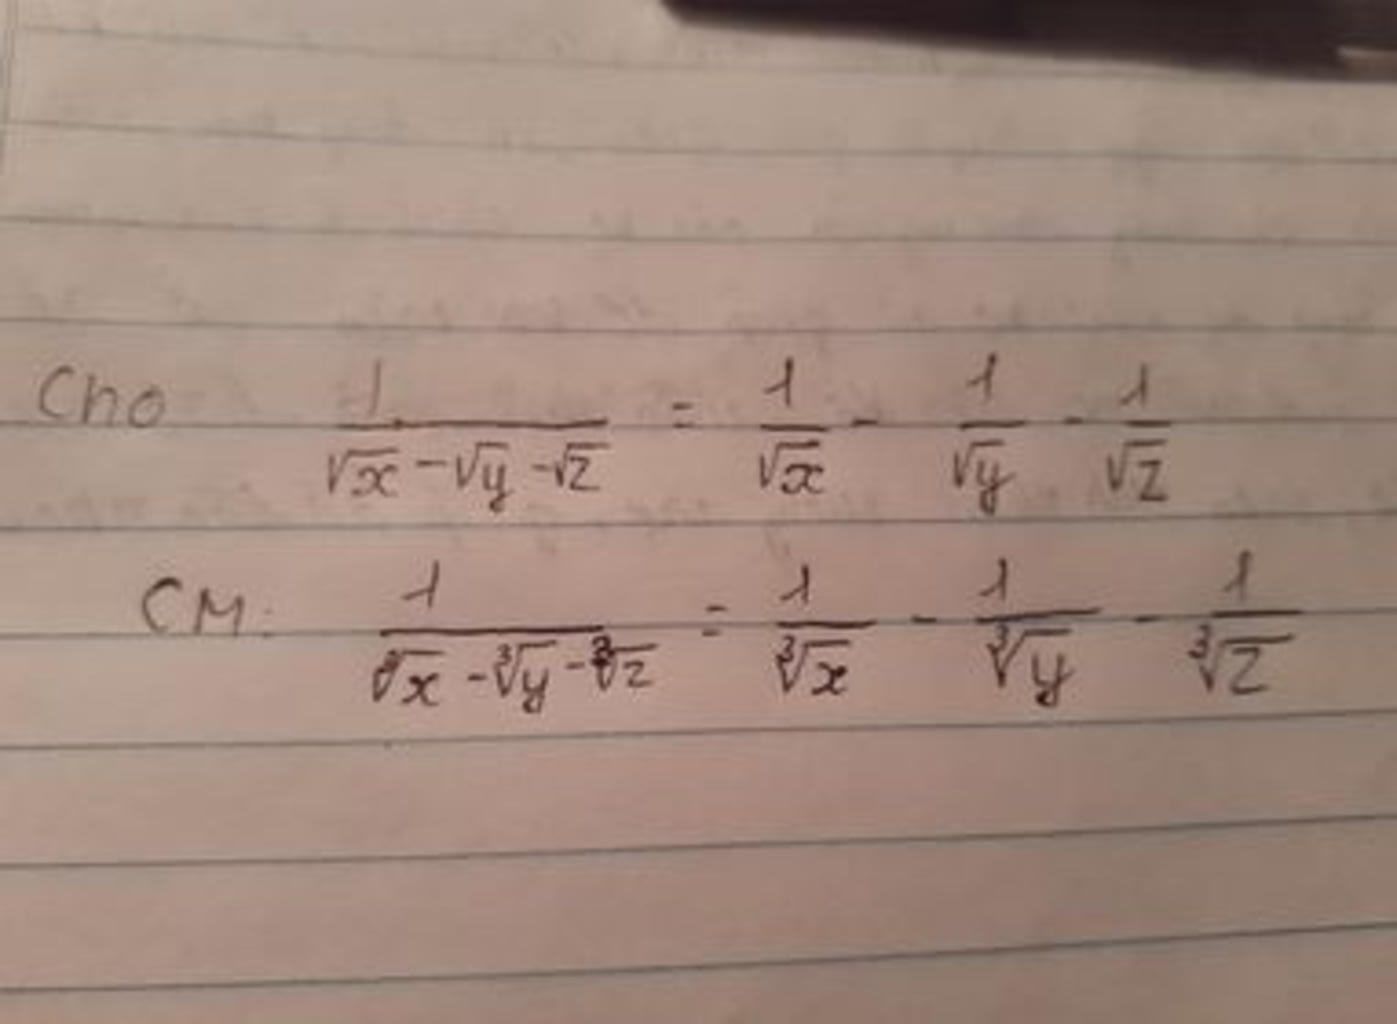 Cho 1/(√x - √y - √z) = 1/√x - 1/√y - 1/√z
CM: 1/(∛x - ∛y - ∛z) = 1/∛x - 1/∛y - 1/∛z